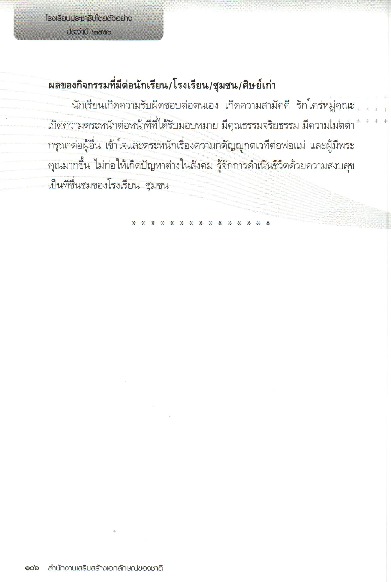 โรงเรียนประชาธิปไตยตัวอย่าง
ผลของกิจกรรมที่มีต่อนักเรียน/โรงเรียน/ชุมชน/ศิษย์เก่า
นักเรียนเกิดความรับผิดชอบต่อตนเอง เกิดความสามัคคี รักใคร่หมู่คณะ
เกิดความตระหนักต่อหน้าที่ที่ได้รับมอบหมาย มีคุณธรรมจริยธรรม มีความเมตตา
กรุณาต่อผู้อื่น เข้าใจและตระหนักเรื่องความกตัญญูกตเวทีต่อพ่อแม่ และผู้มีพระ
คุณมากขึ้น ไม่ก่อให้เกิดปัญหาต่างในสังคม รู้จักการดำเนินชีวิตด้วยความสงบสุข
เป็นที่ชื่นชมของโรงเรียน ชุมชน
* * * * * * * * * * * * * * *
๑๐๖ สำนักงานเสริมสร้างเอกลักษณ์ของชาติ